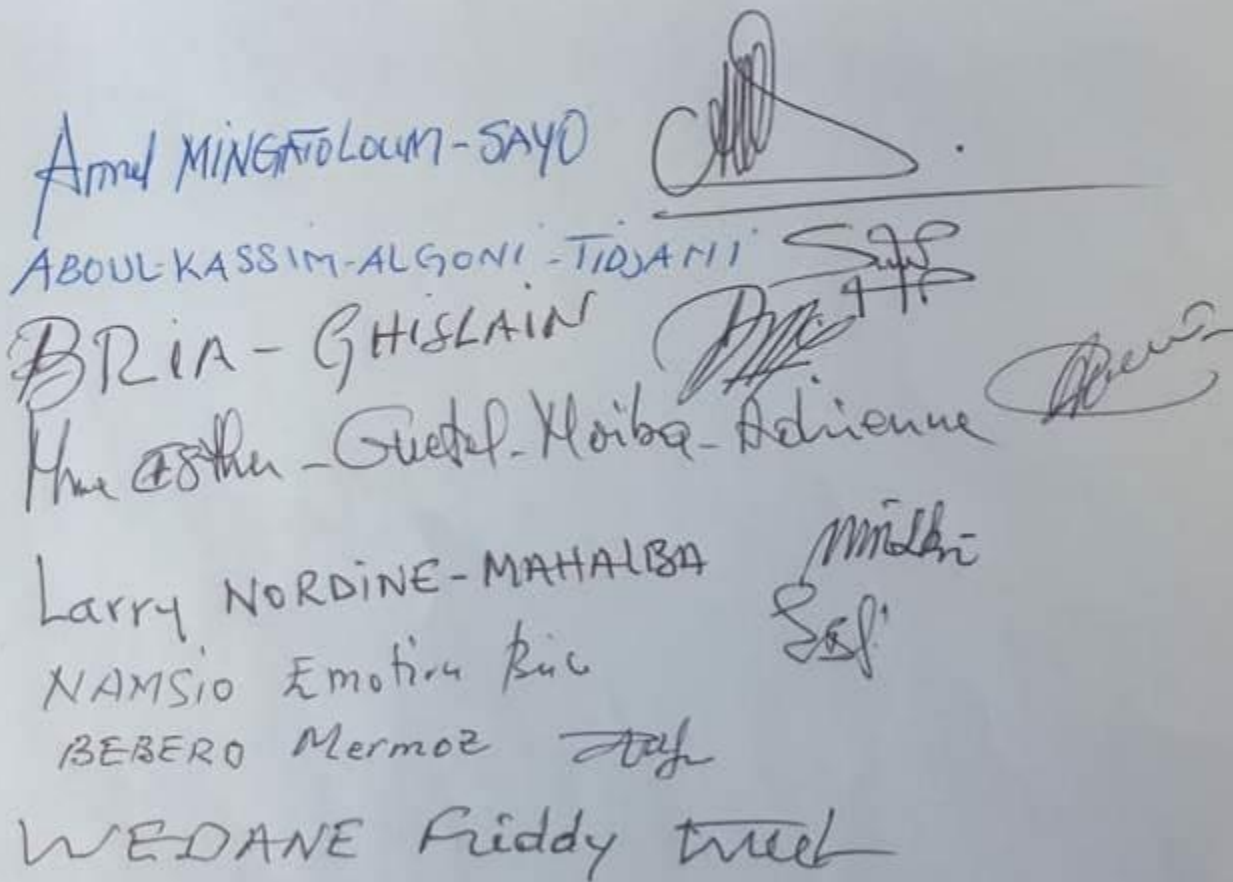 Armel MINGATOLOUM-SAYO
ABOUL-KASSIM-ALGONI-TIDJANI
BRIA-GHISLAIN
Mme Esther-Guetel-Moiba-Adrienne
Larry NORDINE-MAHALBA
NAMSIO Emotion
BEBERO Mermoz
WEDANE Friddy